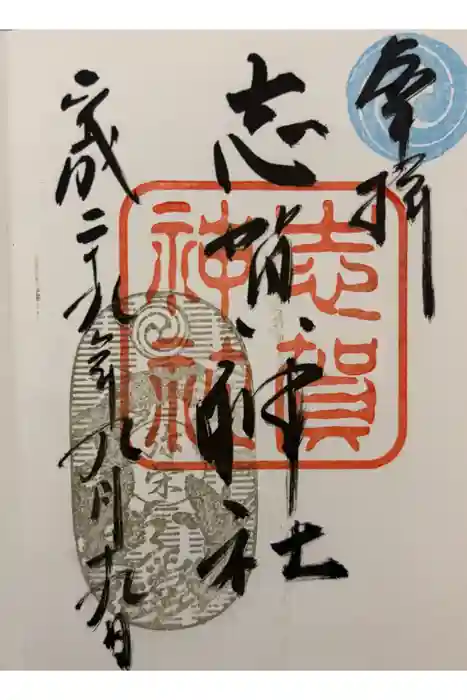 奉拝
志賀神社
平成二十九年九月九日
志賀
神社